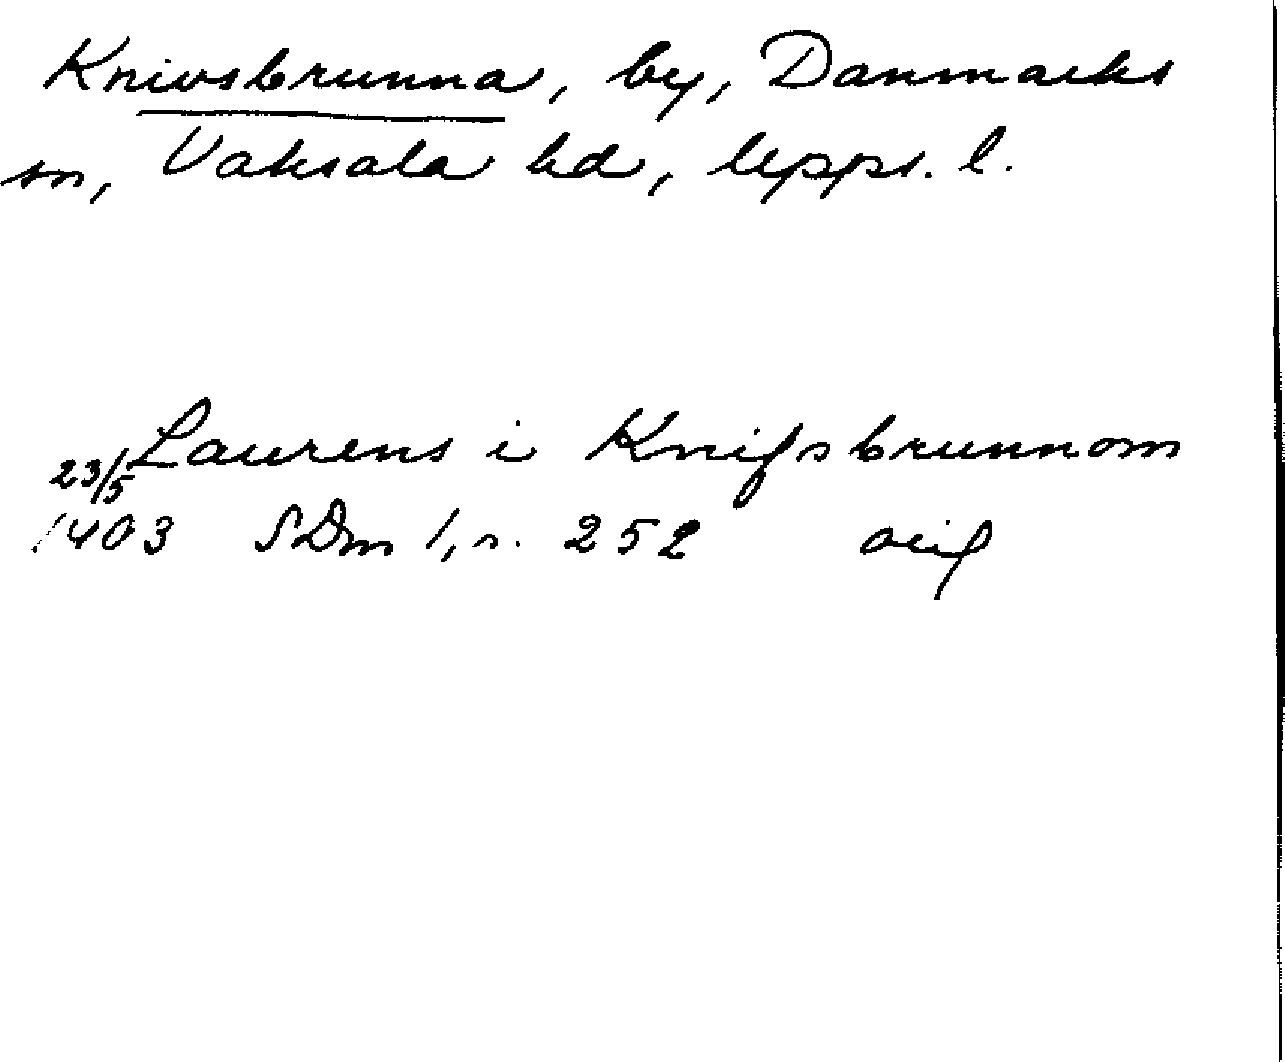 Knivsbrunna, by, Danmarks
sn, Vaksala hd, Upps. l.
Laurens i Knifsbrunnom
23/5
1403 SDm 1, s. 252 orig